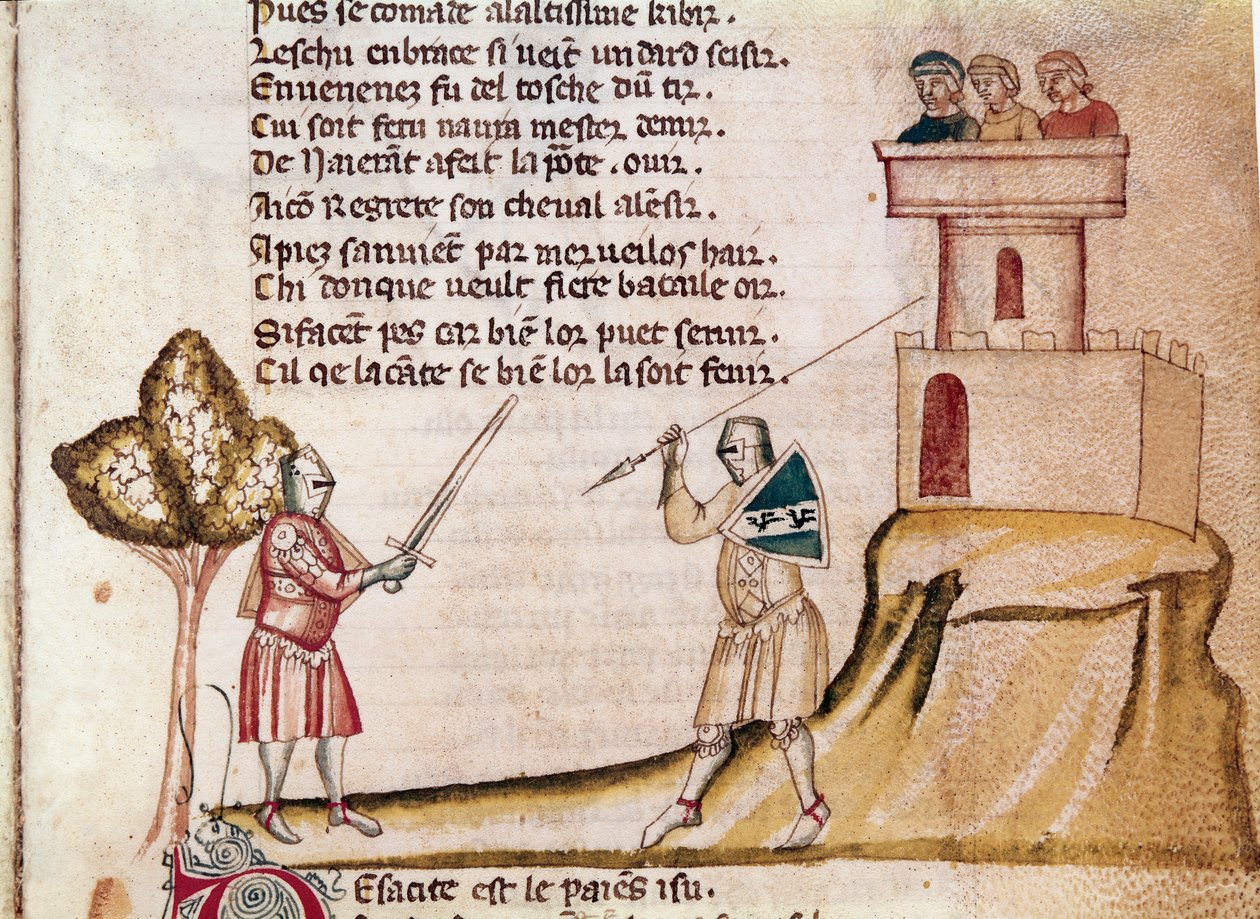 Pues se comade alaltissime kibir.
Leschu enbrace si ueit̄ un dard seisir.
Enuenenez fu del tosche dū tir.
Cui soit feru naura mester demir.
De Naierāt afeit la pōte . ouir.
Regrete son cheval alēsir.
Apiez sanuiet̄ par merueilos hair.
Chi donque ueult fiere bataile oir.
Si facēt pes car biē lor puet seruir.
Cil qe la cāte se biē lor la soit fenir.
Esacite est le paiēs isu.